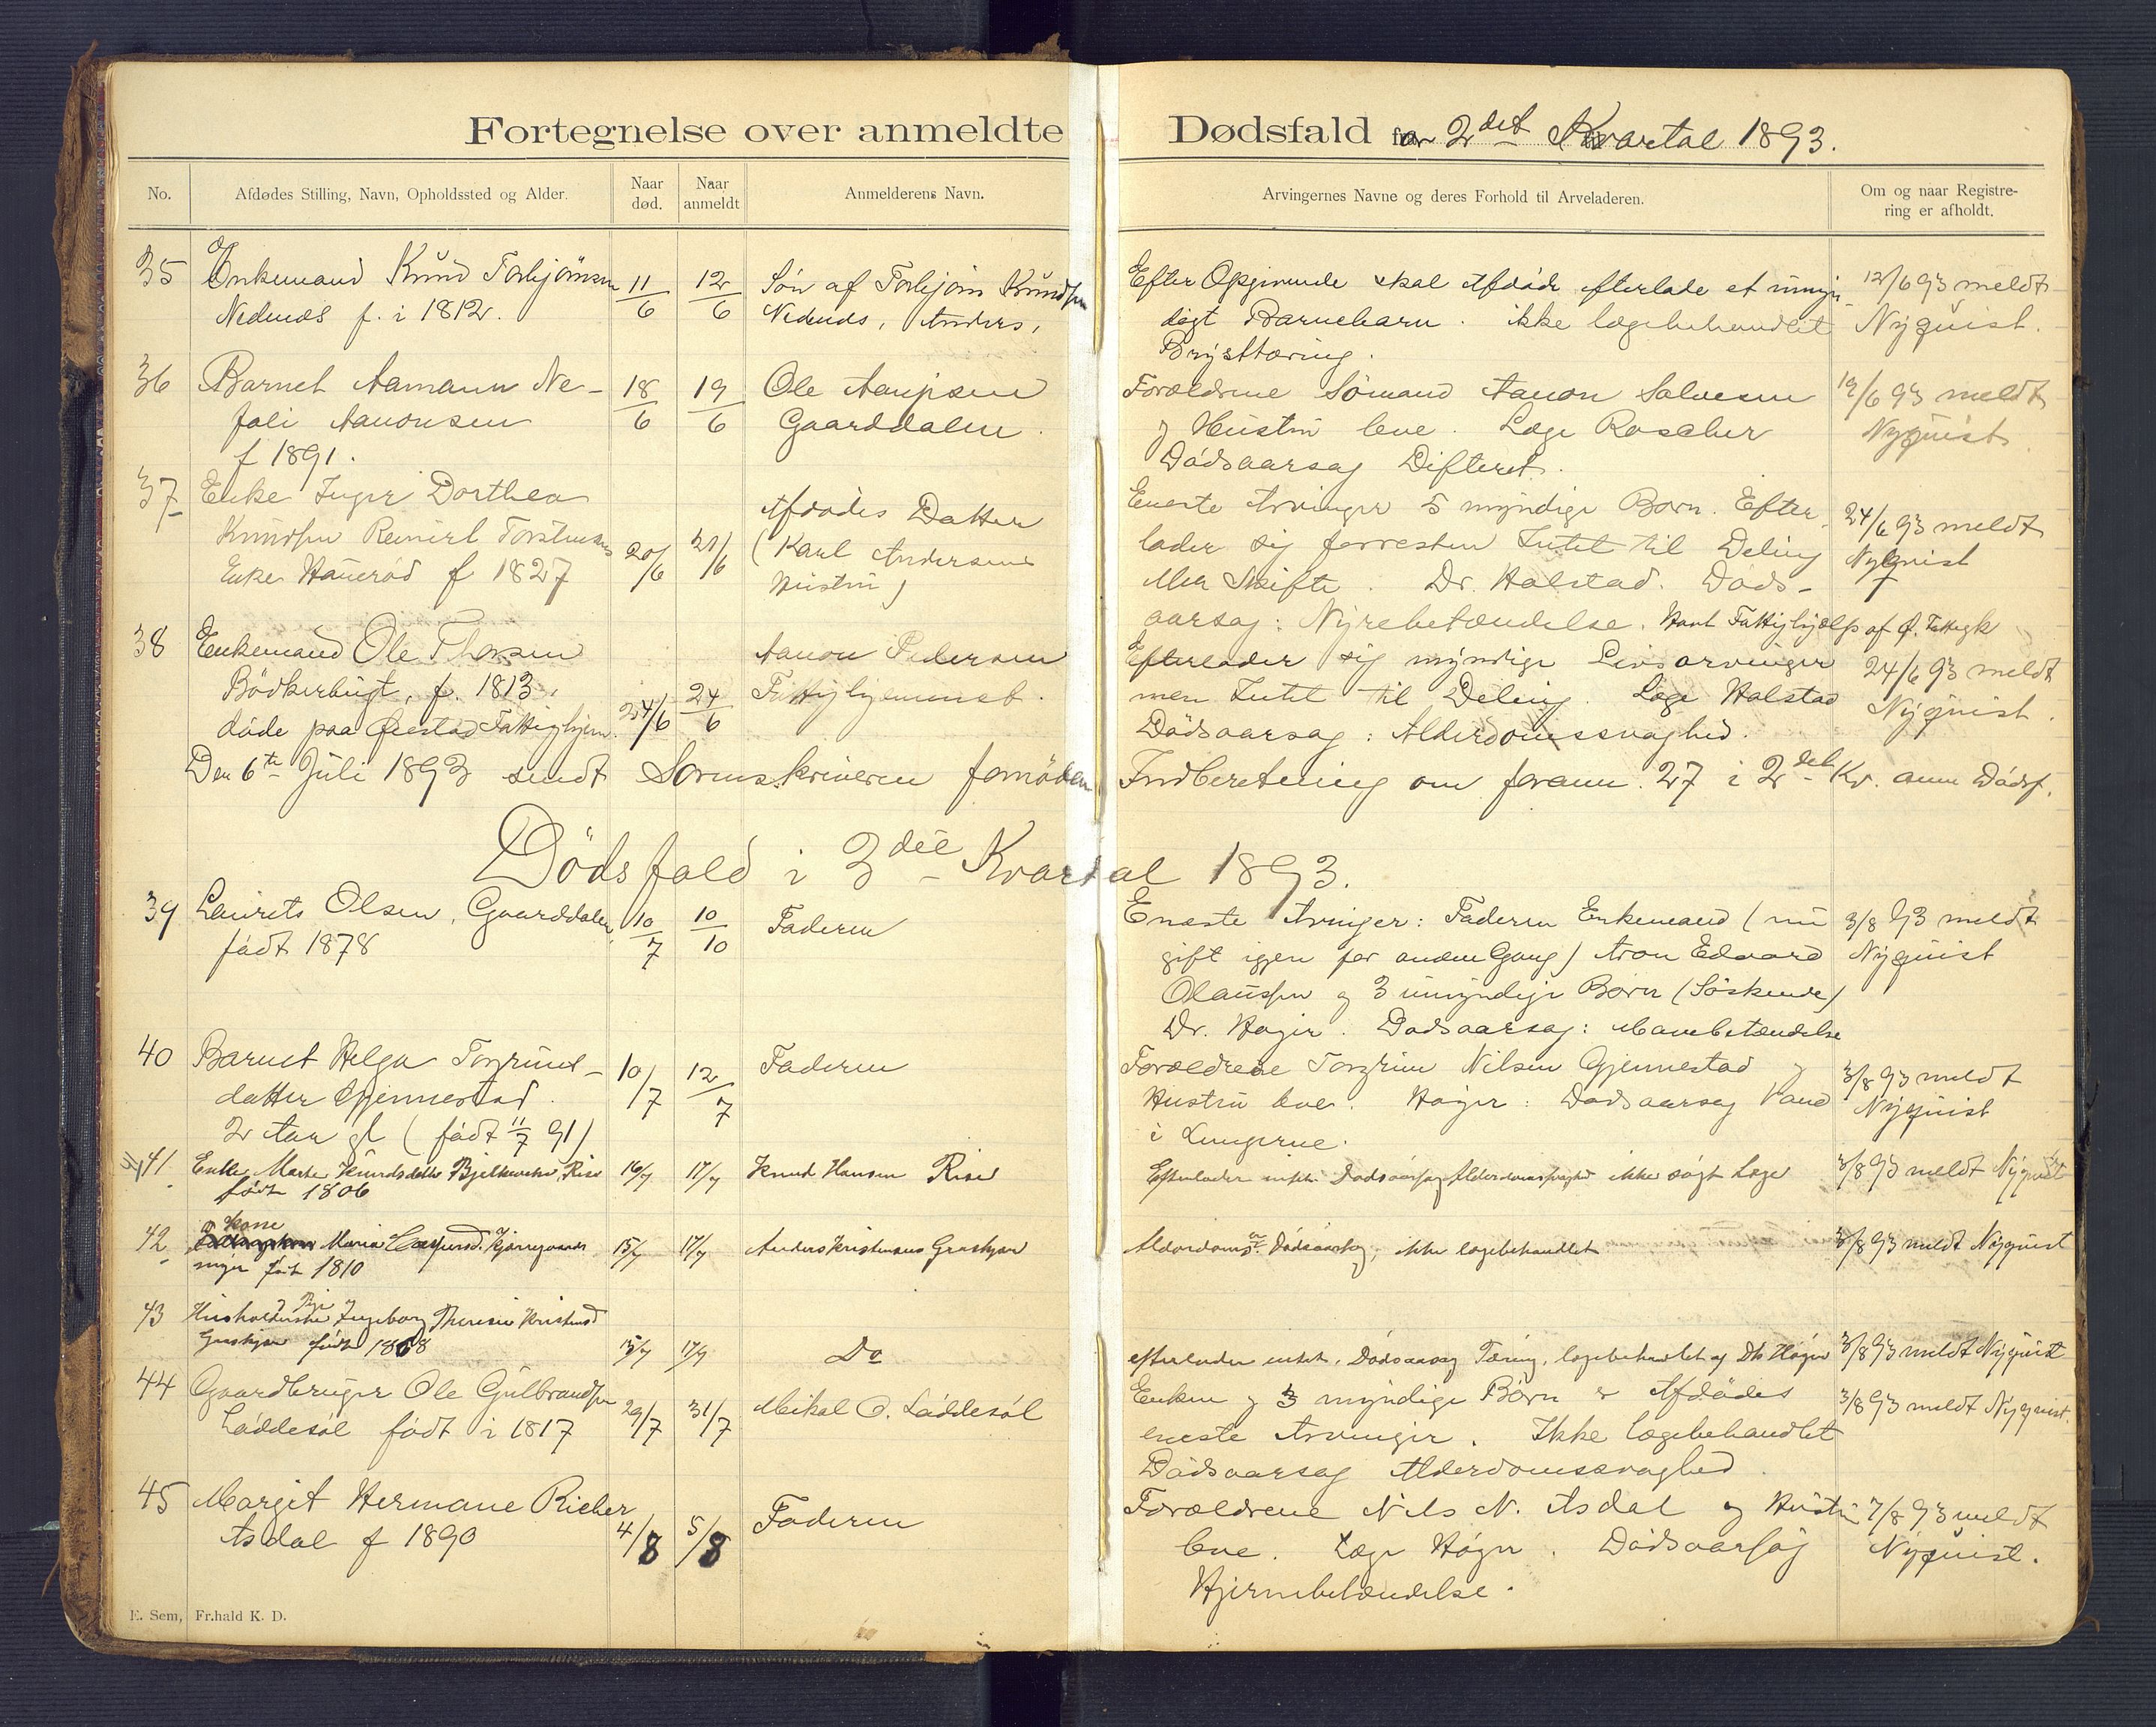 Fortegnelse over anmeldte Dødsfald for 2det Kvartal 1893.
No. Afdødes Stilling, Navn, Opholdssted og Alder. Naar død. Naar anmeldt Anmelderens Navn. Arvingernes Navne og deres Forhold til Arveladeren. Om og naar Registrering er afholdt.
35 Enkemand Knud Torbjørnsen 11/6 12/6 Søn af Torbjørn Knudsen
Nedenæs f. i 1812. Nedenæs, Anders,
Efter Opgivende skal Afdøde efterlade et umyn- 12/6 93 meldt
digt Barnebarn. ikke lægebehandlet Nyquist.
Brysttæring.
36 Barnet Aamann Ne- 18/6 19/6 Ole
fali Aanonsen Gaarddalen.
f 1891.
Forældrene Sømand Aanon Salvesen 19/6 93 meldt
og Hustru leve. Læge Roscher Nyquist.
Dødsaarsag Difterit.
37 Enke Inger Dorthea Afdødes Datter
Knudsen Reinert Torstensens 20/6 21/6 (Karl Andersens
Enke Haverød f 1827 Hustru)
Eneste Arvinger 5 myndige Børn. Efter- 24/6 93 meldt
lader sig forresten Intet til Deling Nyquist
eller Skifte. Dr. Halstad. Døds-
aarsag: Nyrebetændelse. Havt Fattighjælp af
38 Enkemand Ole Thorsen Aanon Pedersen
Bødkerbugt, f. 1813. 24/6 24/6 Fattighjemmet.
døde paa Øiestad Fattighjem.
Efterlader sig myndige Livsarvinger 24/6 93 meldt
men Intet til Deling. Læge Halstad Nyquist.
Dødsaarsag: Alderdomssvaghed.
Den 6te Juli 1893 sendt Sorenskriveren fornøden Indberetning om foranm. 27 i 2det Kv. anm Dødsf.
Dødsfald i 3die Kvartal 1893.
39 Laurits Olsen, Gaarddalen, 10/7 10/10 Faderen
født 1878
Eneste Arvinger: Faderen Enkemand (nu 3/8 93 meldt
gift igjen for anden Gang) Aron Edvard Nyquist
Olaussen og 3 umyndige Børn (Søskende)
Dr. Høyer. Dødsaarsag: Mavebetændelse
40 Barnet Helga Torgrims- 10/7 12/7 Faderen
datter Gjennestad.
2 Aar gl (født 11/7 91)
Forældrene Torgrim Nilsen Gjennestad og 3/8 93 meldt
Hustru leve. Høyer: Dødsaarsag Vand Nyquist
i Lungerne.
41 Enke Marte Knudsdatter Rise 16/7 17/7 Knud Hansen Rise
født 1806
Efterlader intet. Dødsaarsag Alderdomssvaghed ikke søgt Læge 3/8 93 meldt Nyquist
42 Kone Maria 15/7 17/7 Anders Kristensen
født 1810
Alderdoms Dødsaarsag, ikke lægebehandlet 3/8 93 meldt Nyquist
43 Husholderske Ingeborg Theresie Kristensd
født 1868 15/7 17/7 Do
efterlader intet. Dødsaarsag Tæring. lægebehandlet af Dr. Høyer 3/8 93 meldt Nyquist
44 Gaardbruger Ole Gulbrandsen 29/7 31/7 Mikal O. Løddesøl
Løddesøl født i 1817
Enken og 3 myndige Børn er Afdødes 3/8 93 meldt Nyquist.
eneste Arvinger. Ikke lægebehandlet
Dødsaarsag Alderdomssvaghed.
45 Margit Hermane Rieber 4/8 5/8 Faderen
Asdal f 1890
Forældrene Nils N. Asdal og Hustru 7/8 93 meldt
leve. Læge Høyer. Dødsaarsag Nyquist.
Hjernebetændelse.
E. Sem, Fr.hald K. D.